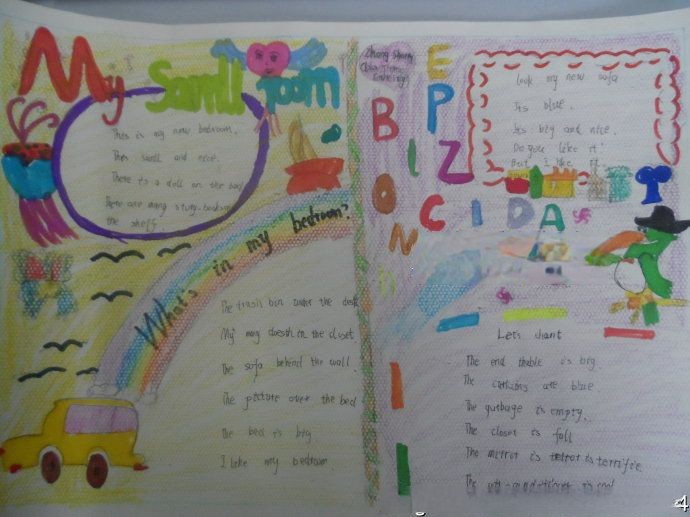 My Samll room
This is my new bedroom.
This small and nice.
There is a doll on the bed
There are many story-books on
the shelf
What's in my bedroom?
The trash bin under the desk
My in the closet
The sofa behind the wall.
The picture over the bed
The bed is big
I like my bedroom
Look my new sofa
Its blue.
It's big and nice.
Do you like it?
But I like it
B I O N
E P Z C I D A T
Let's chant
The end thable is big.
The curtains are blue
The garbage is empty.
The closet is full
The mirror is terrific
The is cool
4